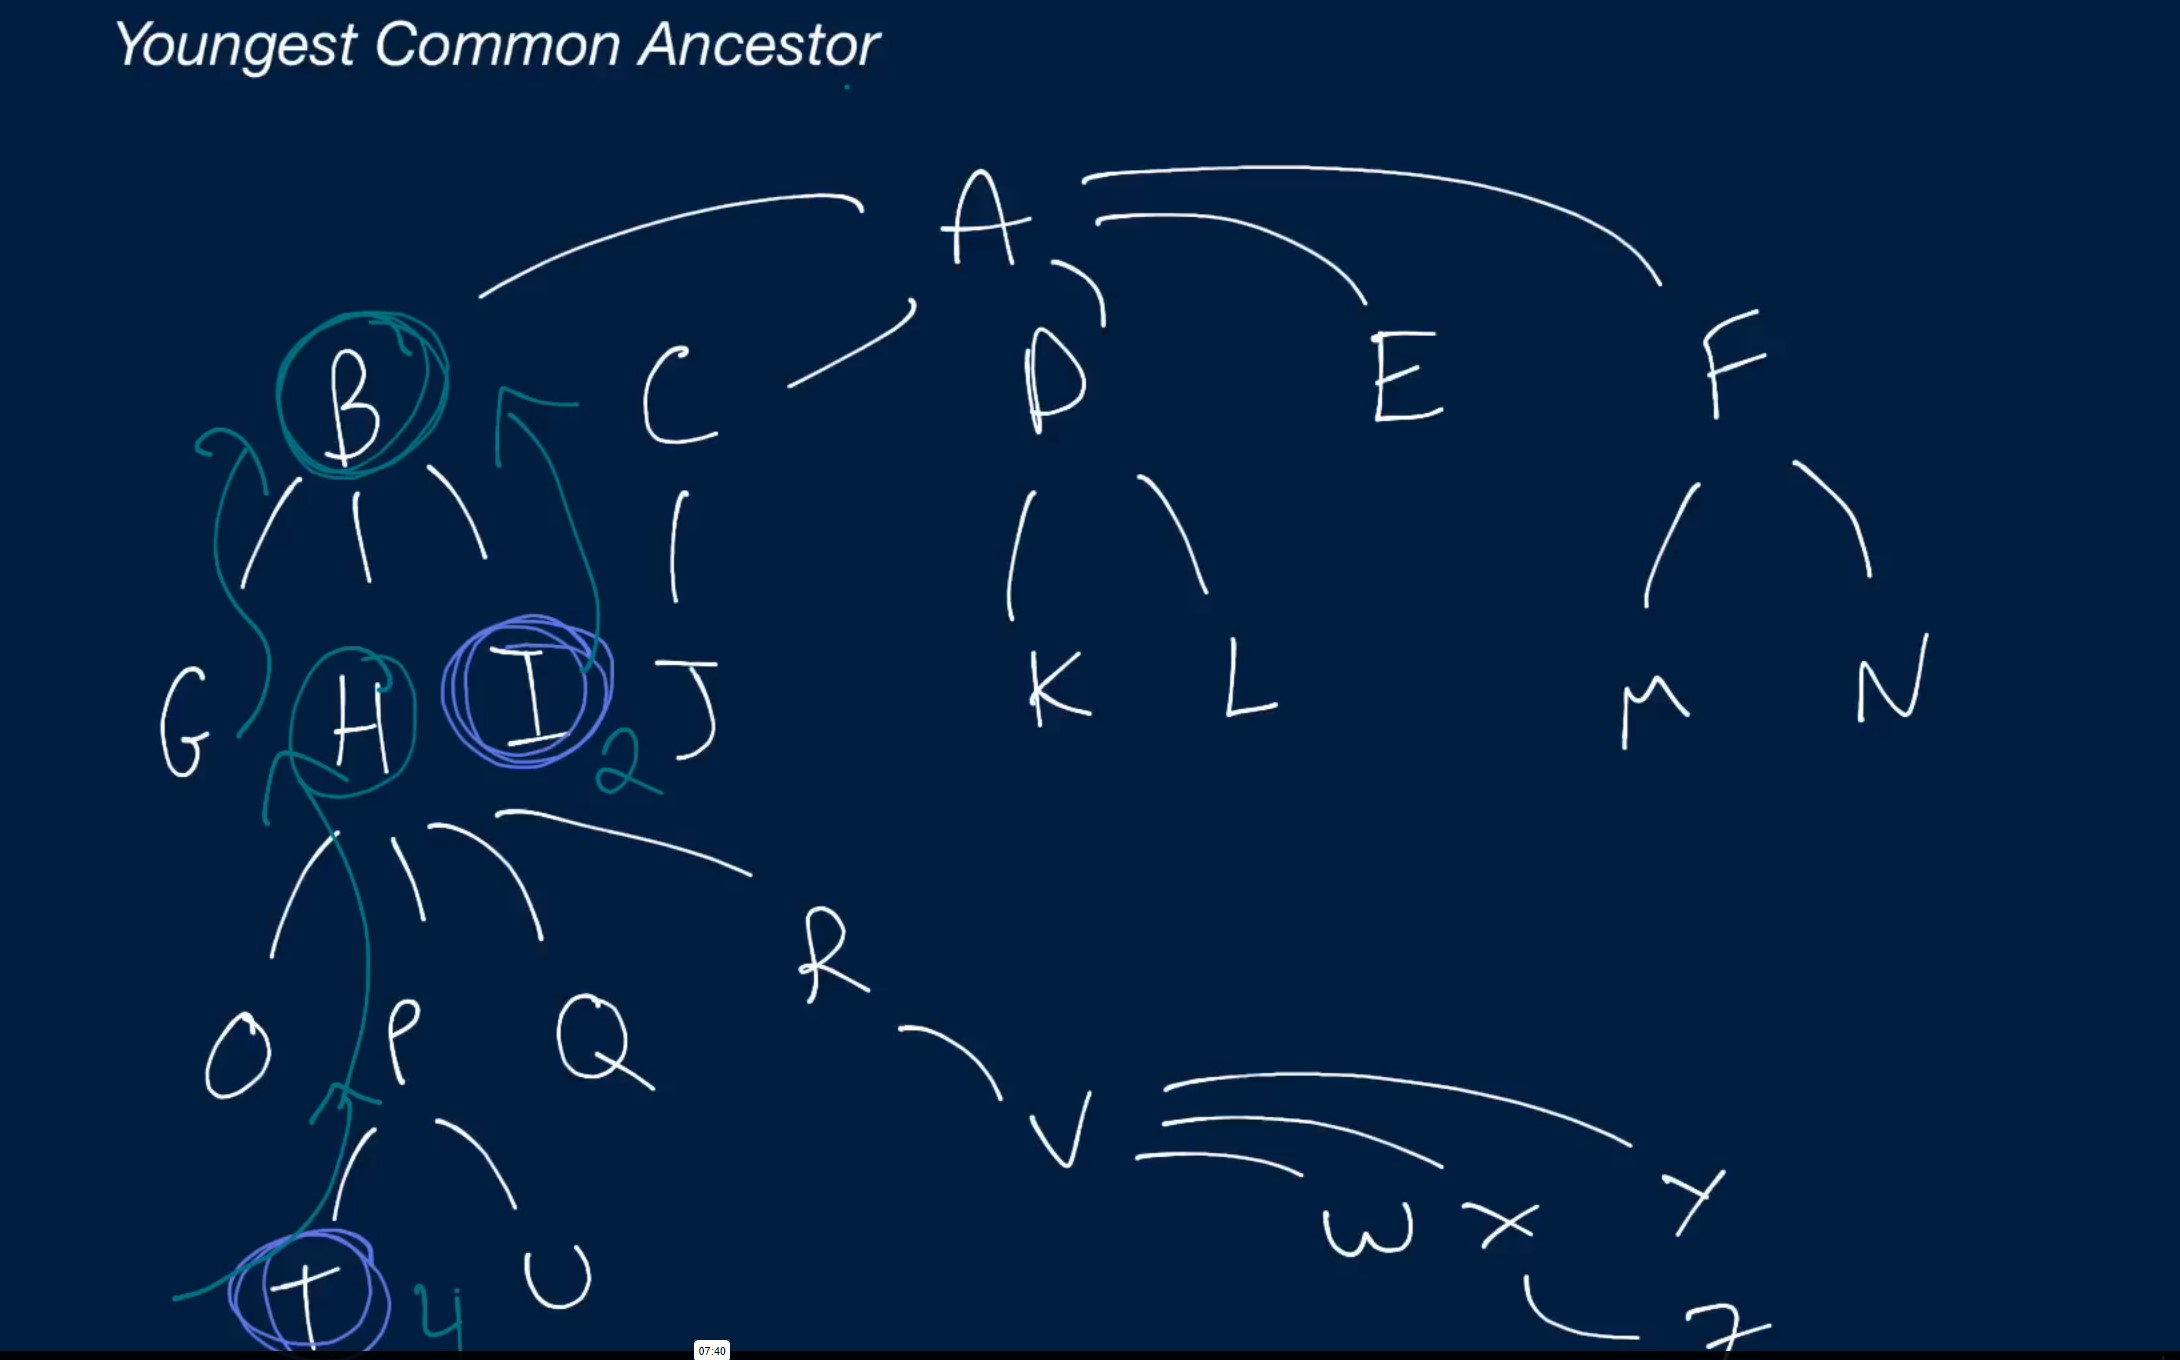 Youngest Common Ancestor
A
B C D E F
G H I J K L M N
2
R
O P Q
V
W X Y
T 4 U Z
07:40